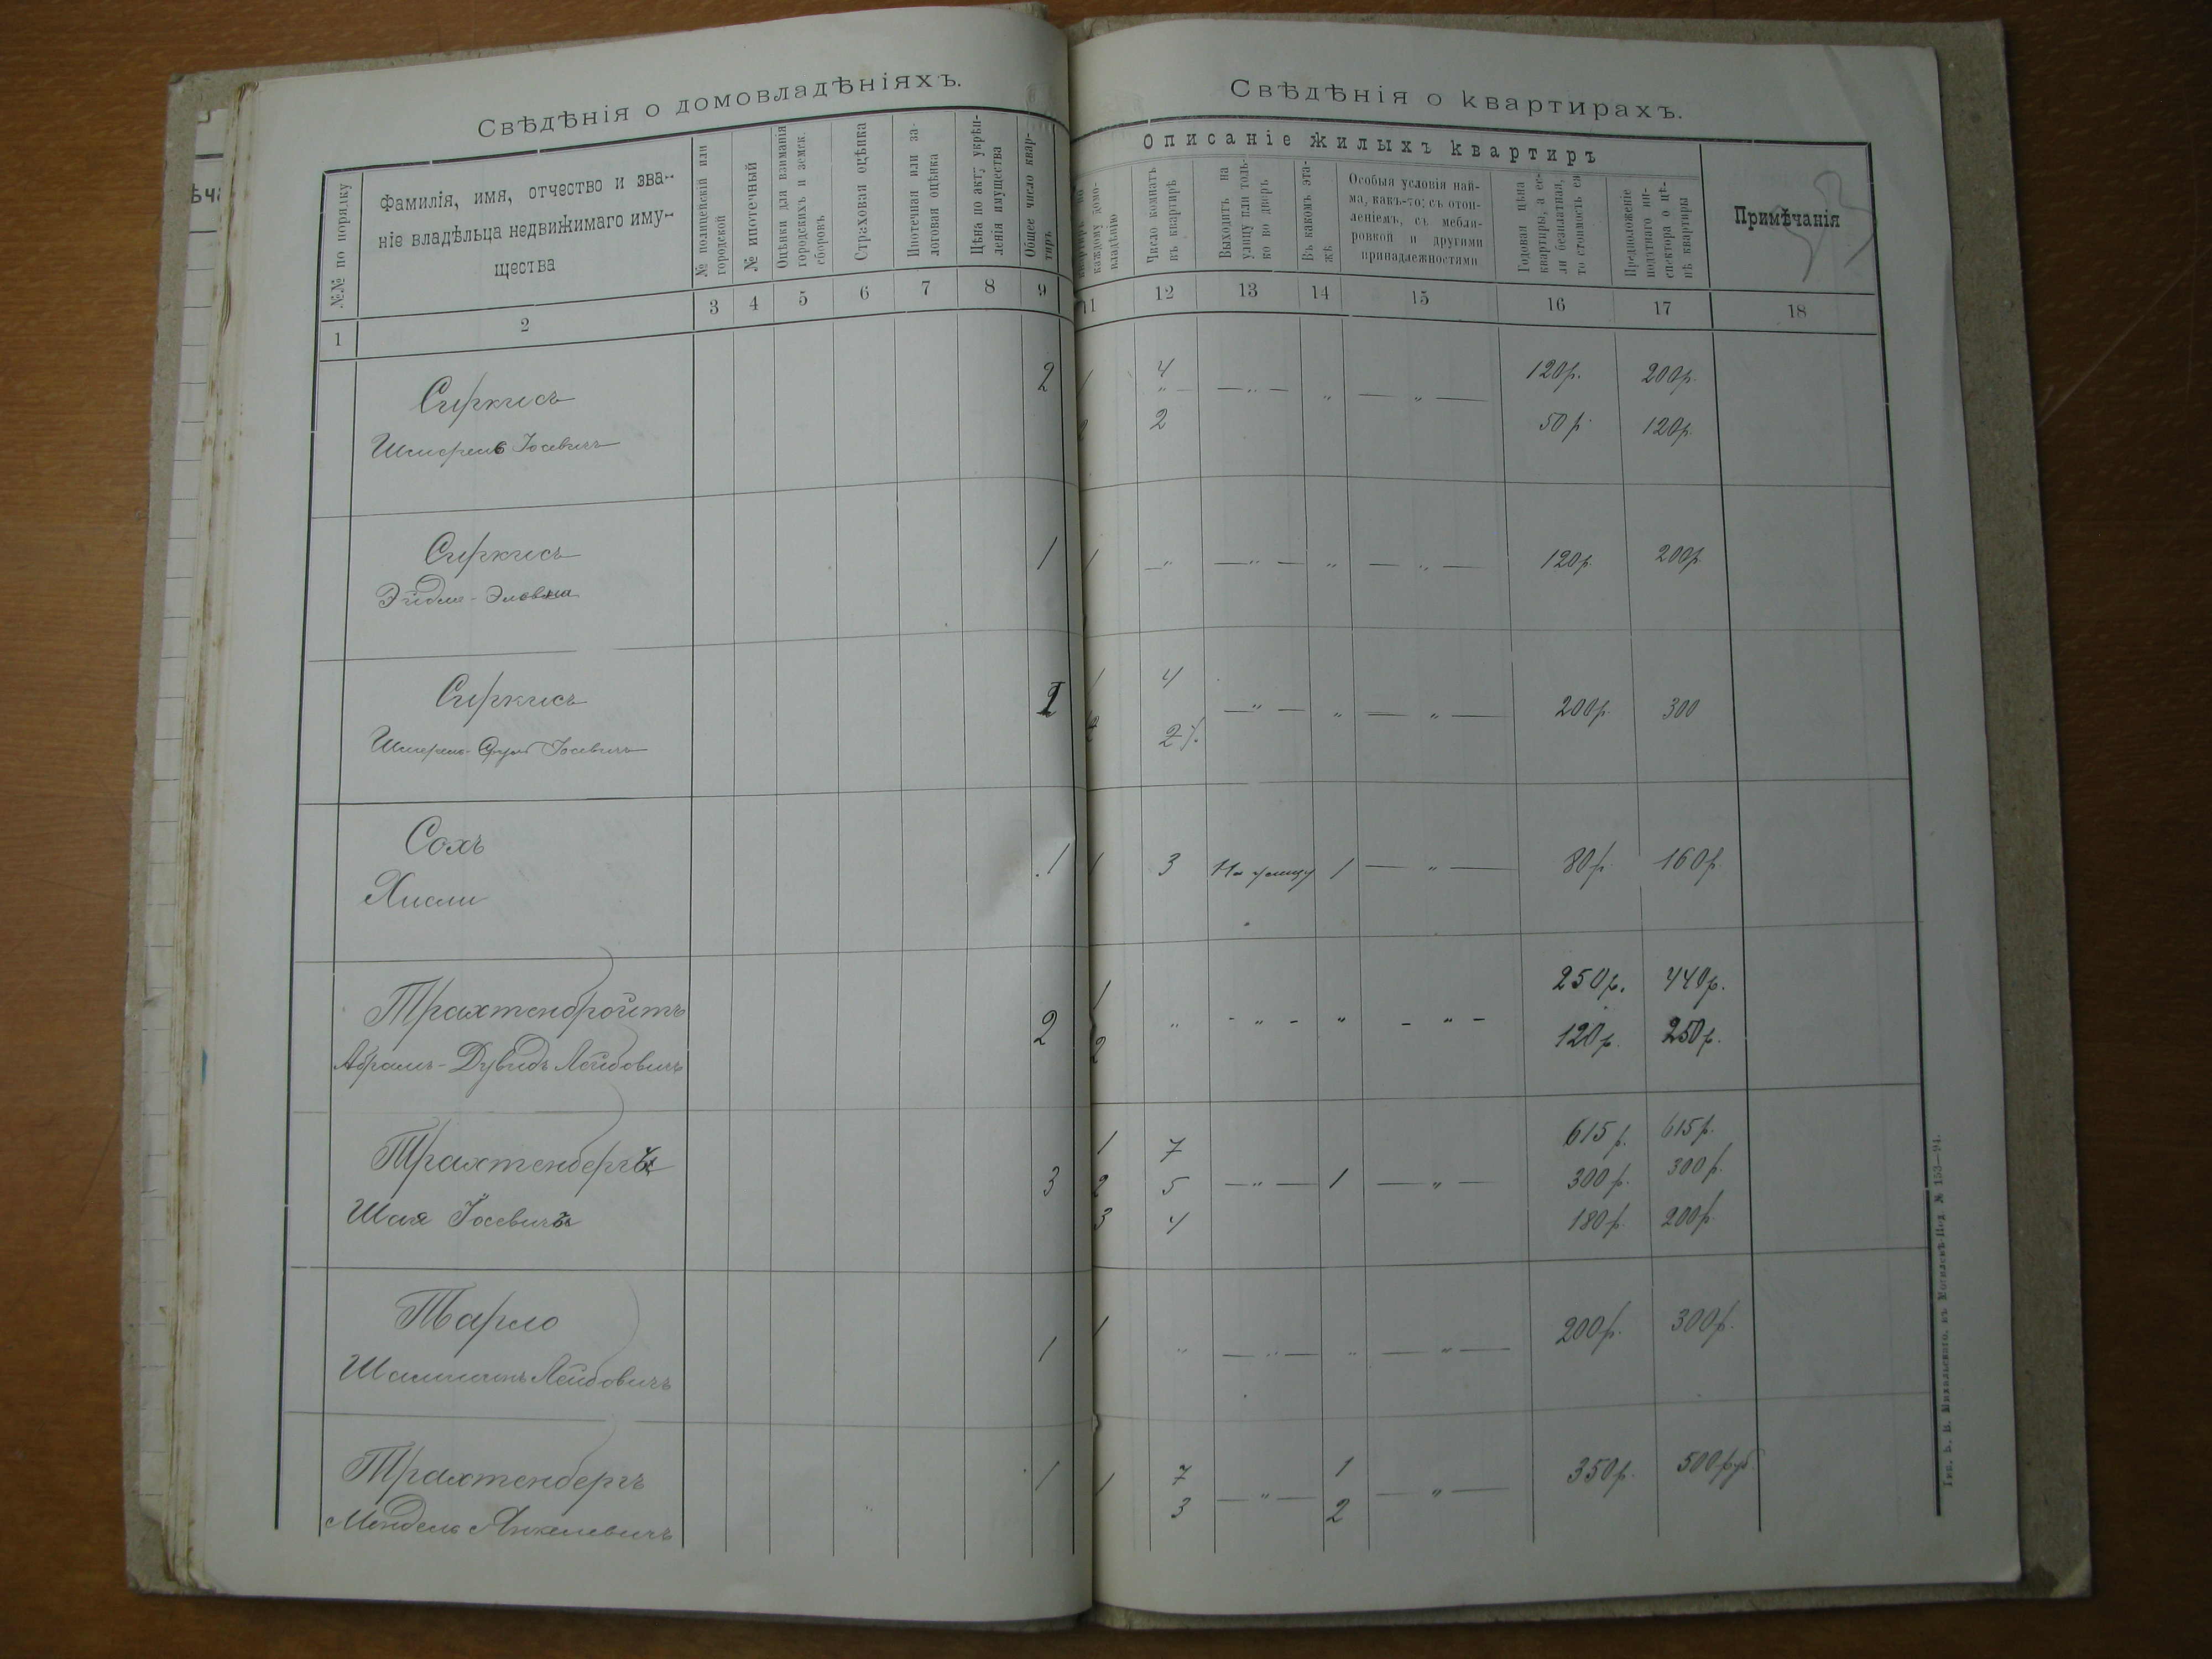 Свѣдѣнія о домовладѣніяхъ.
№№ по порядку
Фамилія, имя, отчество и зва-
ніе владѣльца недвижимаго иму-
щества
№ полицейскій или
городской
№ ипотечный
Оцѣнки для взиманія
городскихъ и земск.
сборовъ
Страховая оцѣнка
Ипотечная или за-
логовая оцѣнка
Цѣна по акту укрѣп-
ленія имущества
Общее число квар-
тиръ
1 2 3 4 5 6 7 8 9
Сиркисъ 2
Шмерель Іосевичъ
Сиркисъ 1
Эйдля-
Сиркисъ
Іосевичъ
Сохъ 1
Трахтенбройтъ 2
Абрамъ-Дувидъ Лейбовичъ
Трахтенбергъ 3
Шая Іосевичъ
Тарло 1
Лейбовичъ
Трахтенбергъ 1
Мендель Янкелевичъ
Свѣдѣнія о квартирахъ.
Описаніе жилыхъ квартиръ
каждому домо-
владѣнію
Число комнатъ
въ квартирѣ
Выходитъ на
улицу или толь-
ко во дворъ
Въ какомъ эта-
жѣ
Особыя условія най-
ма, какъ-то: съ отоп-
леніемъ, съ мебли-
ровкой и другими
принадлежностями
Годовая цѣна
квартиры, а ес-
ли безплатная,
то стоимость ея
Предположеніе
податнаго ин-
спектора о цѣ-
нѣ квартиры
Примѣчанія
11 12 13 14 15 16 17 18
1 4 120р. 200р.
" — " — " — " —
2 2 50р. 120р.
1 — " — " — " — " — 120р. 200р.
1 4
— " — " — " — 200р. 300
2
1 3 На улицу 1 — " — 80р. 160р.
1 250р. 440р.
" - " - " - " -
2 120р. 250р.
1 7 615р. 615р.
2 5 — " — 1 — " — 300р. 300р.
3 4 180р. 200р.
1 " — " — " — " — 200р. 300р.
1 7 1 350р. 500руб.
— " — — " —
3 2
Тип. Ь. В. Михальскаго, въ Могилевѣ Под. № 153—94.